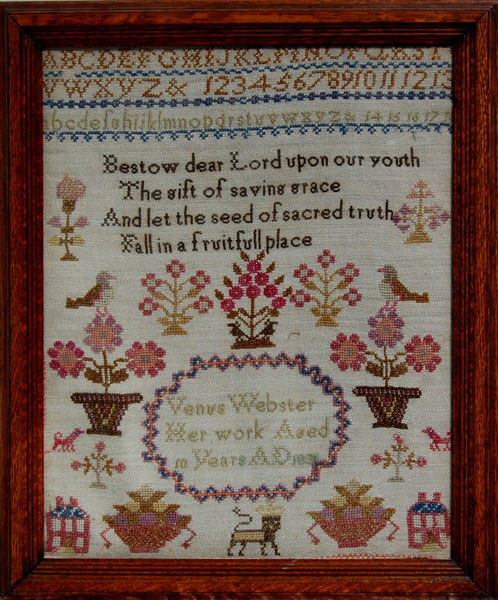 ABCDEFGHIJKLMNOPQRST
VWXYZ& 12345678910111213
abcdefghijklmnopqrstuvwxyz& 14 15 16 17
Bestow dear Lord upon our youth
The gift of saving grace
And let the seed of sacred truth
Fall in a fruitfull place
Venus Webster
Her work Aged
Years AD